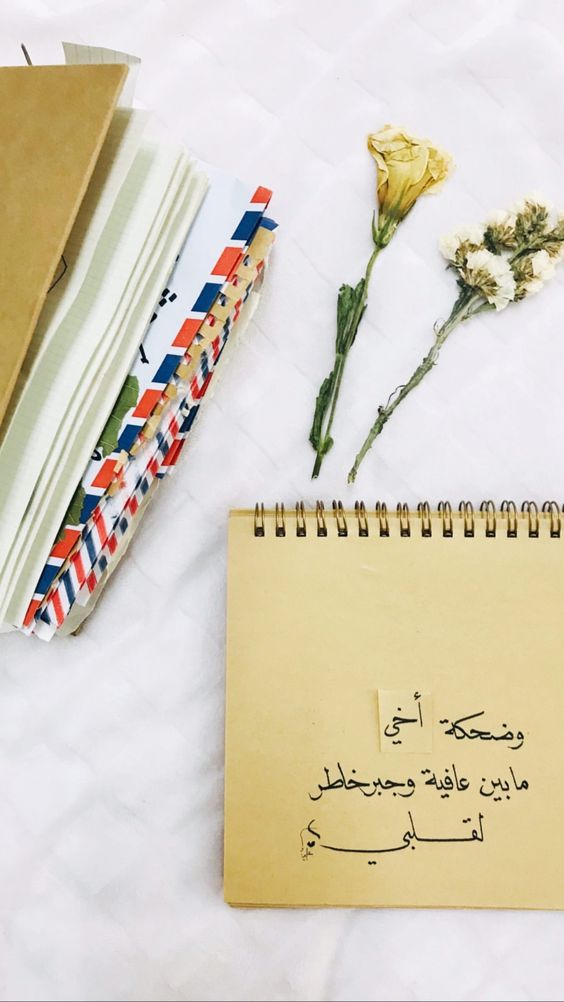 وضحكة أخي
مابين عافية وجبرخاطر
لقلبي